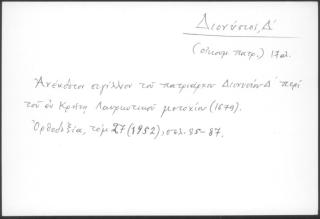 Διονύσιος, Δ΄
(οἰκουμ. πατρ.) 17 αἰ.
Ἀνέκδοτον σιγίλλιον τοῦ πατριάρχου Διονυσίου Δ΄ περὶ
τοῦ ἐν Κρήτῃ μετοχίου (1679).
Ὀρθοδοξία, τόμ. 27 (1952), σελ. 85-87.